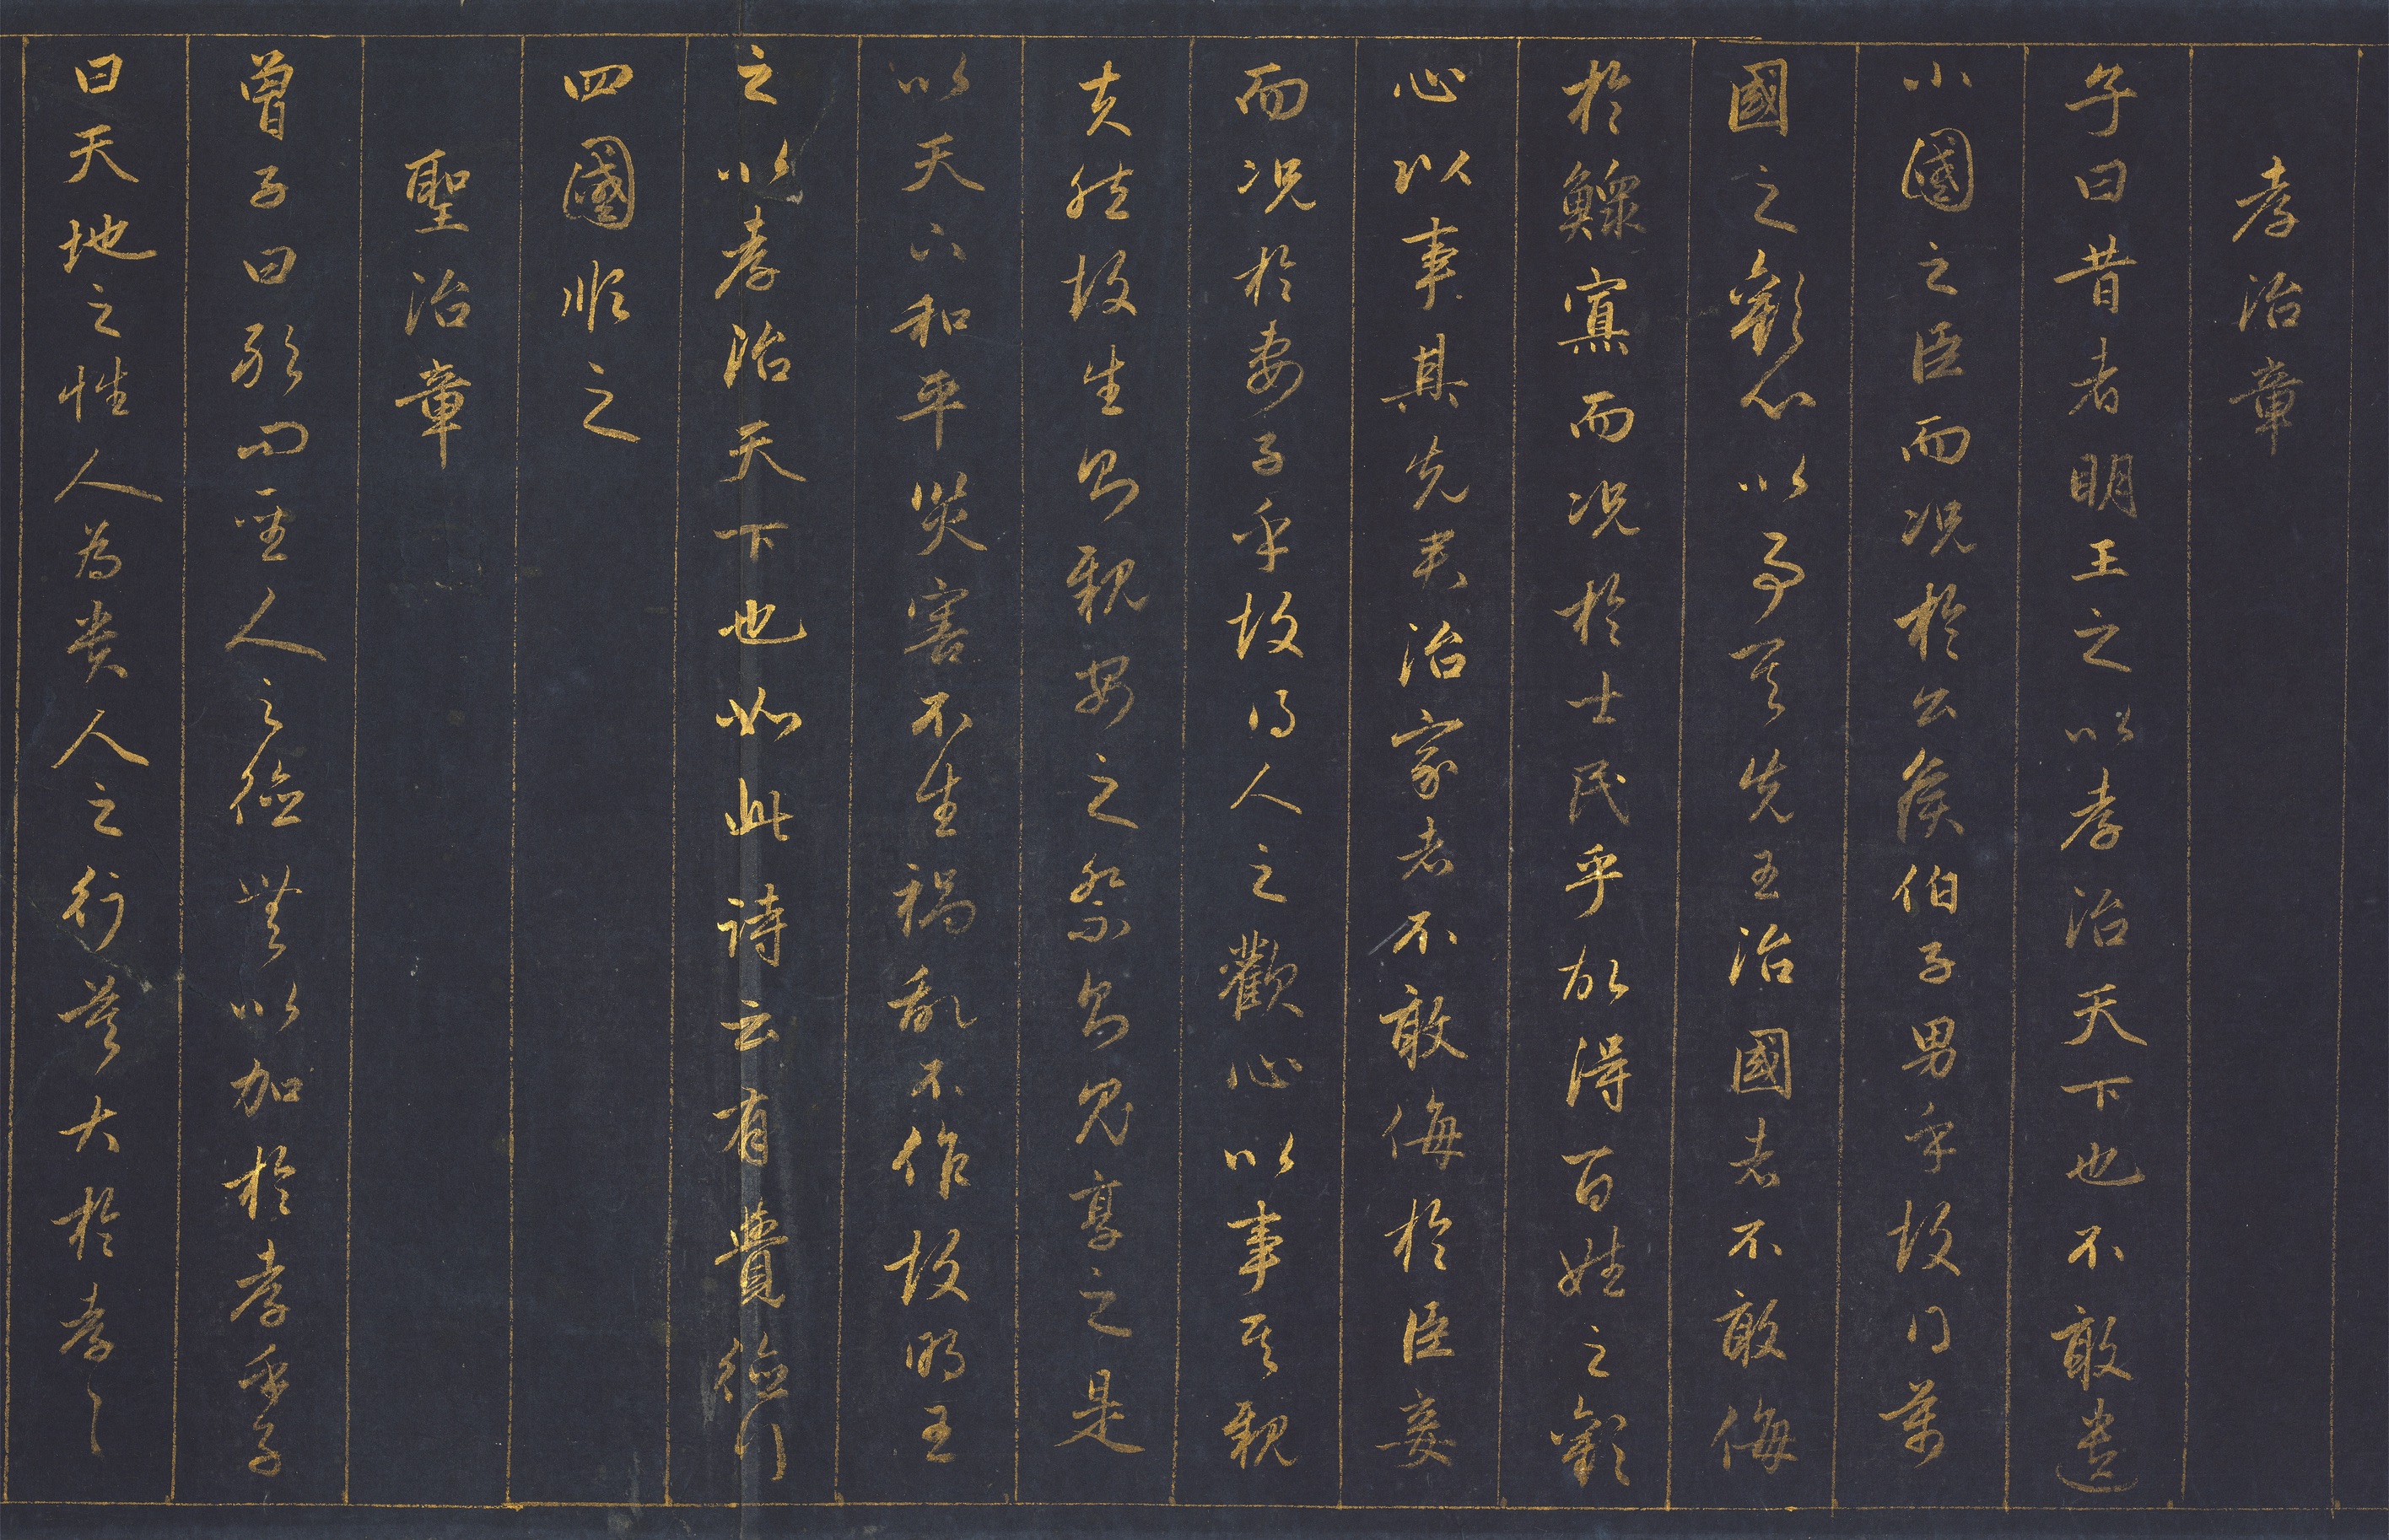 孝治章
子曰昔者明王之以孝治天下也不敢遺
小國之臣而况於公侯伯子男乎故得萬
國之歡心以事其先王治國者不敢侮
於鰥寡而况於士民乎故得百姓之歡
心以事其先君治家者不敢侮於臣妾
而况於妻子乎故得人之歡心以事其親
夫然故生則親安之祭則鬼享之是
以天下和平災害不生禍亂不作故明王
之以孝治天下也如此詩云有覺德行
四國順之
聖治章
曾子曰敢問聖人之德無以加於孝乎子
曰天地之性人為貴人之行莫大於孝々